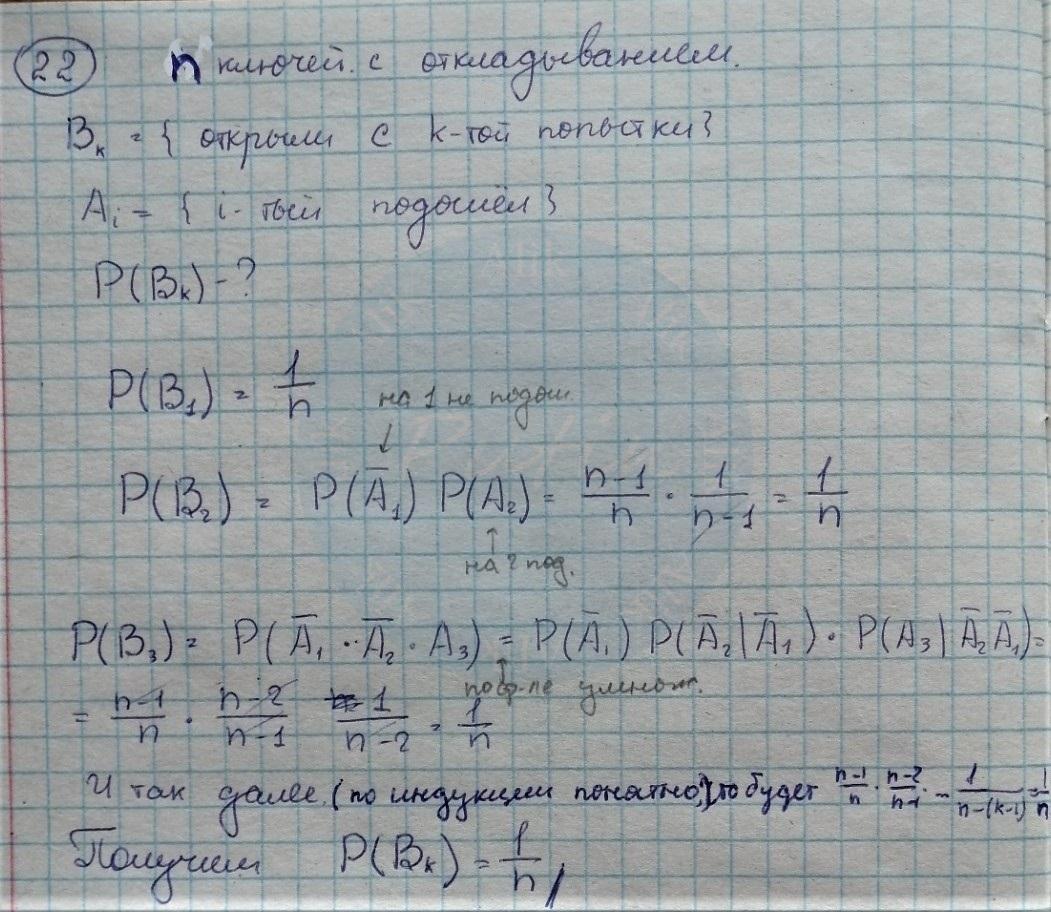 22 n ключей с откладыванием.
Bₖ = { открыли с k-той попытки}
Aᵢ = { i-тый подошёл}
P(Bₖ) - ?
P(B₁) = 1/n
на 1 не подош.
↓
P(B₂) = P(Ā₁) P(A₂) = (n-1)/n · 1/(n-1) = 1/n
↑
на 2 под.
P(B₃) = P(Ā₁ · Ā₂ · A₃) = P(Ā₁) P(Ā₂|Ā₁) · P(A₃|Ā₂Ā₁) =
↑
по ф-ле умнож.
= (n-1)/n · (n-2)/(n-1) 1/(n-2) = 1/n
И так далее (по индукции понятно,) то будет (n-1)/n · (n-2)/(n-1) · – 1/(n-(k-1)) = 1/n
Получим P(Bₖ) = 1/n